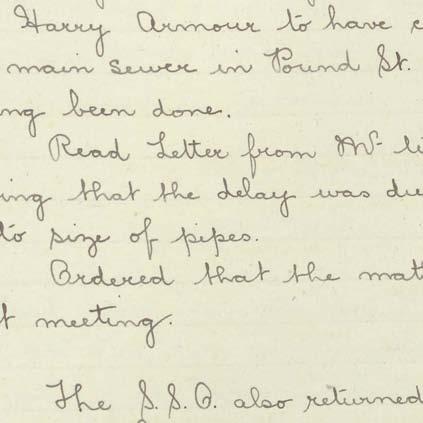 Harry Armour to have c
main sewer in Pound St.
ng been done.
Read Letter from Mr. li
ing that the delay was due
to size of pipes.
Ordered that the matt
t meeting.
The S.S.O. also returned